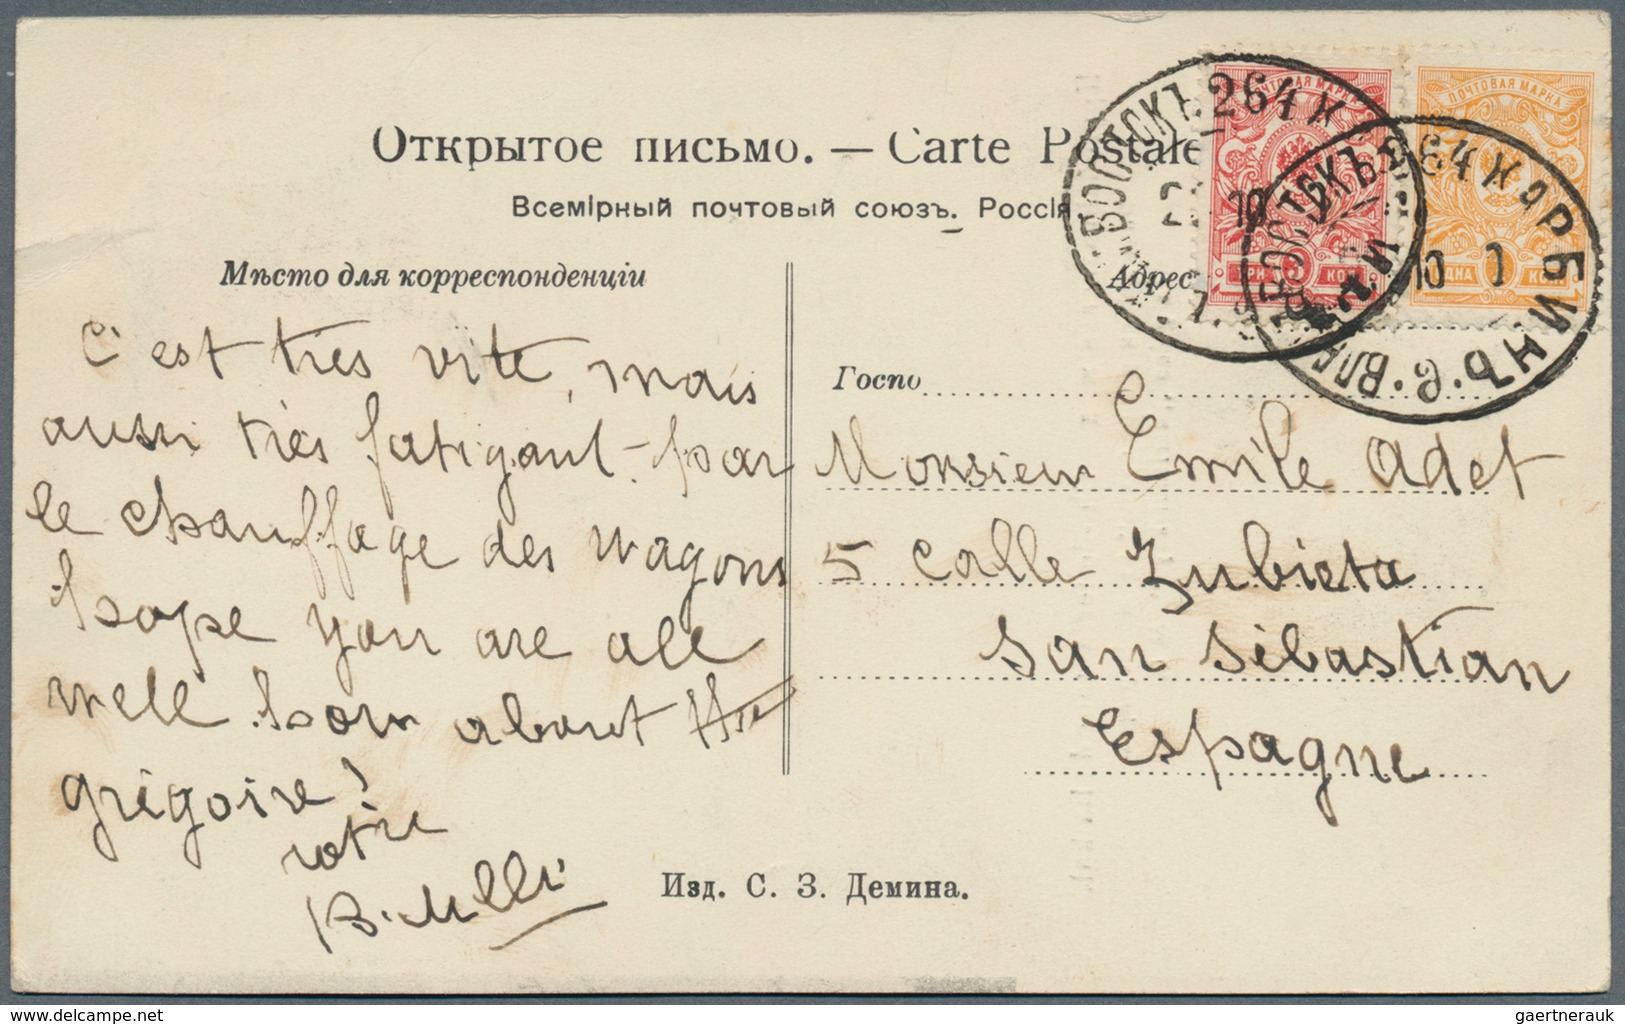 Открытое письмо. — Carte Postale
Всемірный почтовый союзъ. Россія
Мѣсто для корреспонденціи
Адрес
C'est très vite, mais
aussi très fatigant - par
le chauffage des wagons
hope you are all
well. how about
grégoire!
votre
Госпо
Monsieur Emile Adet
5 Calle Zubieta
San Sébastian
Espagne
Изд. С. З. Демина.
ПОЧТОВАЯ МАРКА
ТРИ 3 КОП
ПОЧТОВАЯ МАРКА
ОДНА 1 КОП
264 ХАРБИНЪ
10
gaertnerauk